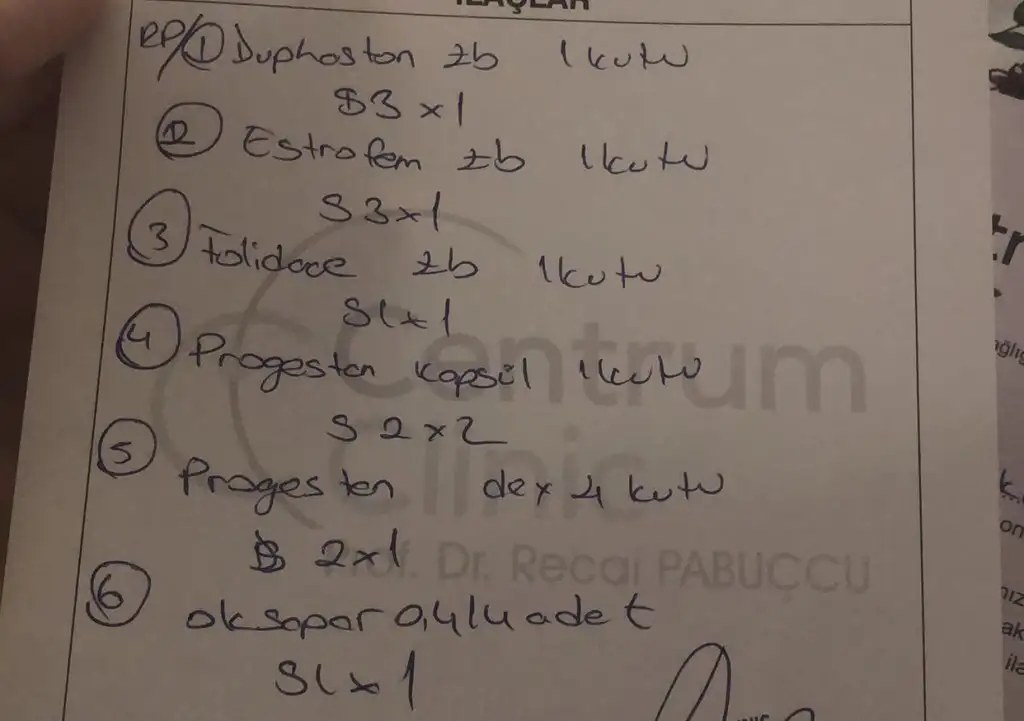 İLAÇLAR
RP/ 1 Duphaston tb 1 kutu
S 3 x 1
2 Estrofem tb 1 kutu
S 3 x 1
3 Folidoce tb 1 kutu
S 1 x 1
4 Progestan kapsül 1 kutu
S 2 x 2
5 Progesten dex 4 kutu
S 2 x 1
6 oksapar 0,4 14 adet
S 1 x 1
Centrum
Clinic
Prof. Dr. Recai PABUÇCU